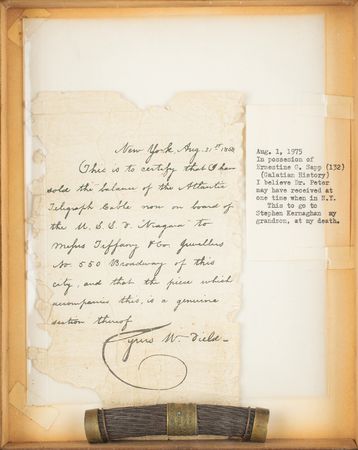 New York, Aug. 21st 1858
This is to certify that I have
sold the balance of the Atlantic
Telegraph Cable now on board of
the U. S. S. F. Niagara to
Messrs Tiffany & Co. Jewellers
No 550 Broadway of this
city, and that the piece which
accompanies this, is a genuine
section thereof
Cyrus W. Field
Aug. 1, 1975
In possesion of
Ernestine G. Sapp (132)
(Galatian History)
I believe Dr. Peter
may have received at
one time when in N.Y.
This to go to
Stephen Kernaghan my
grandson, at my death.